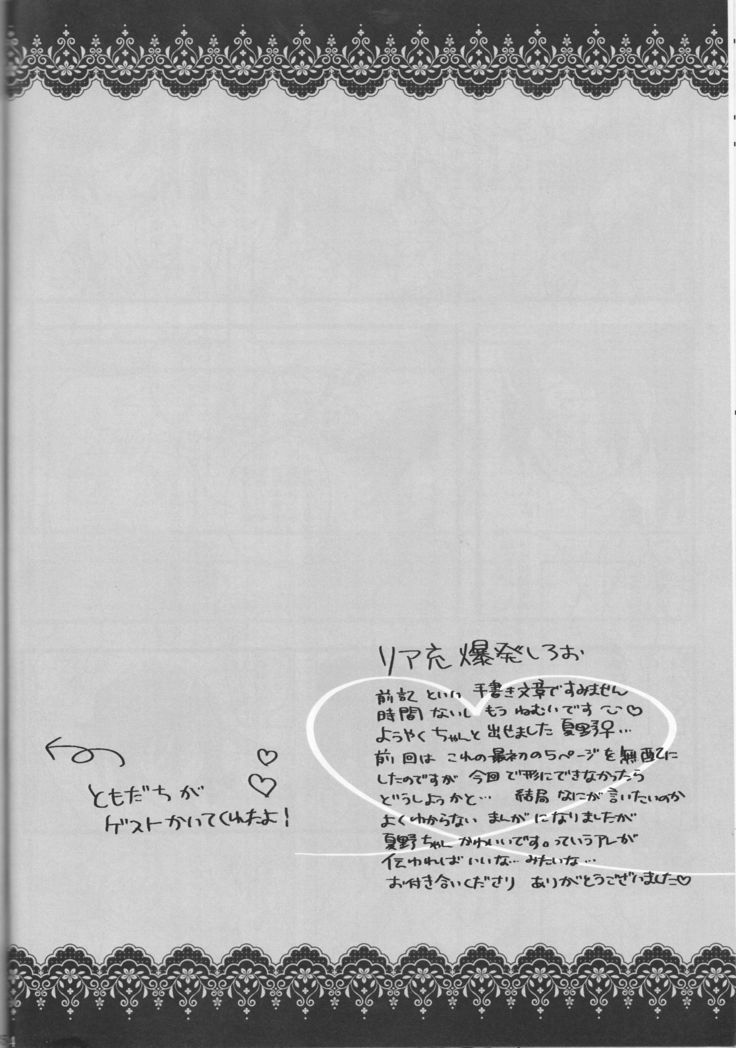 リア充爆発しろお
前記といい 手書き文章ですみません
時間ないし もう ねむいです〜♡
ようやく ちゃんと 出せました 夏野♀…
前回は これの最初の5ページを無配に
したのですが 今回で形にできなかったら
どうしようかと… 結局 なにが言いたいのか
よくわからない まんがになりましたが
夏野ちゃん かわいいです。っていうアレが
伝わればいいな… みたいな…
お付き合いくださり ありがとうございました♡
ともだちが
ゲストかいてくれたよ!
54